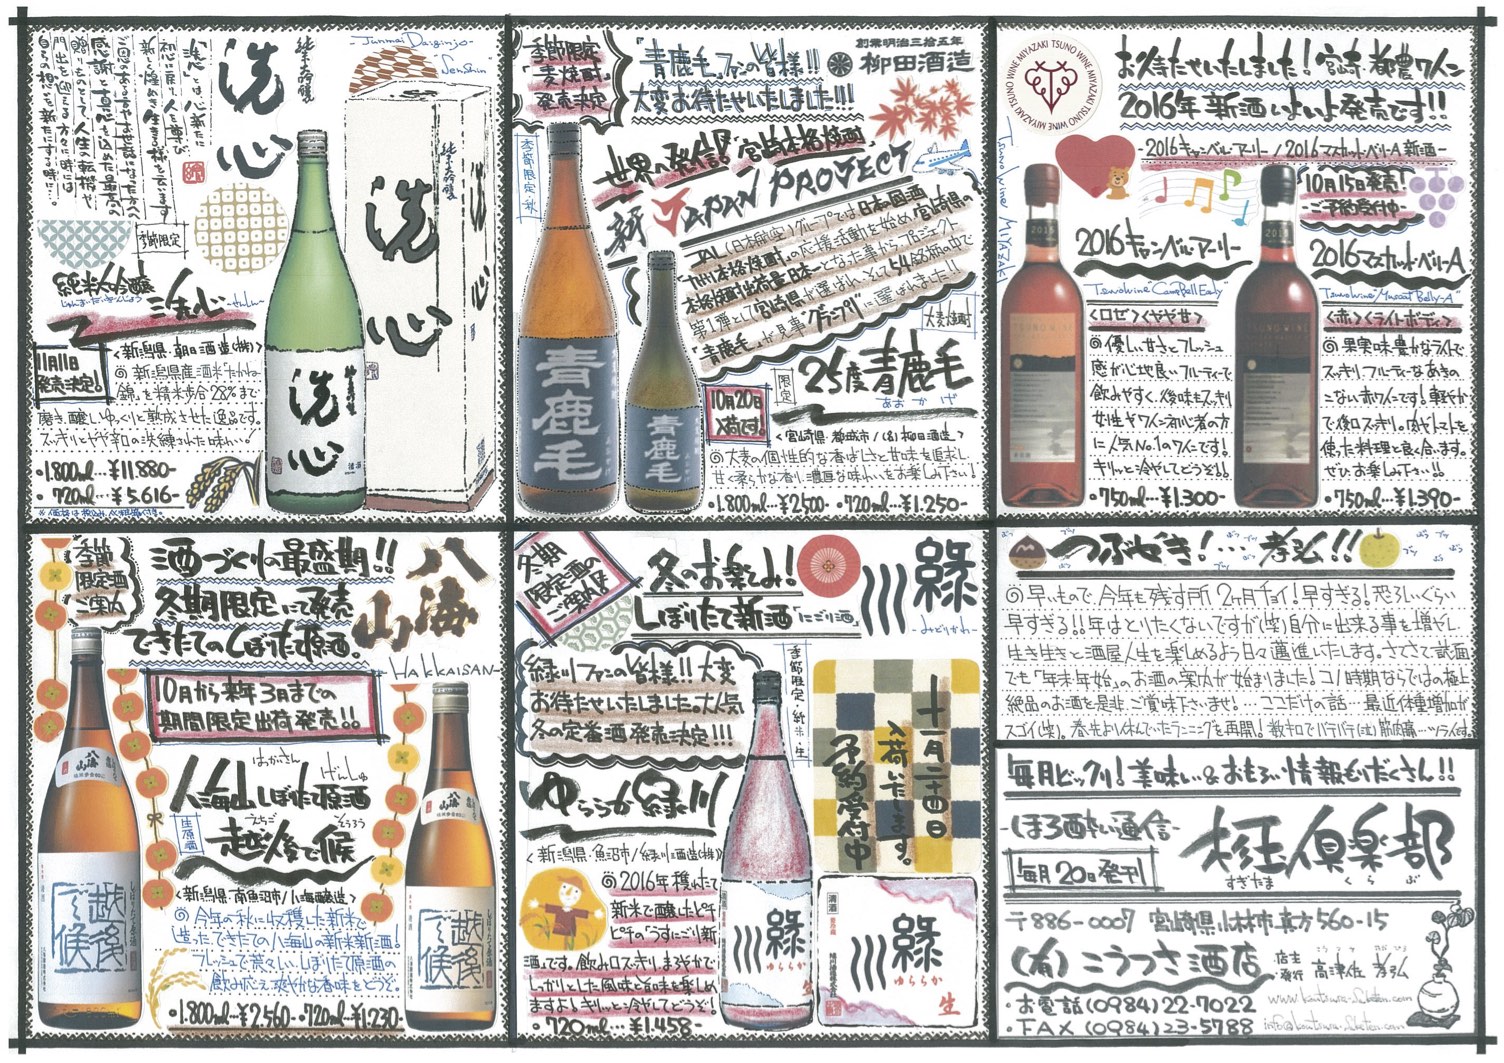 純米大吟醸
洗心
「洗心」とは、心新たに
初心に戻り、人を尊び
新しく煌めき生きる様を云います
ご恩のある方やお世話になった方へ
感謝と真心を込めた最高の
贈りものとして、人生の転機で
門出を迎える方々に、時には
自らの想いを新たにする時に…
-Junmai Daiginjo-
"Senshin"
季節限定
純米大吟醸
じゅんまいだいぎんじょう
洗心
-せんしん-
11月11日
発売決定!
<新潟県・朝日酒造(株)>
◎新潟県産酒米「たかね
錦」を精米歩合28%まで
磨き、醸し、ゆっくりと熟成させた逸品です。
スッキリとやや辛口の洗練された味わい!
・1.800ml…¥11.880-
・720ml…¥5.616-
純米大吟醸
洗心
洗心
純米大吟醸
洗心
清酒
季節限定
「麦焼酎」
発売決定
「青鹿毛」ファンの皆様!!
大変お待たせいたしました!!!
創業明治三拾五年
柳田酒造
季節限定・秋
世界へ発信!「宮崎本格焼酎」
新 JAPAN PROJECT
JAL(日本航空)グループでは「日本の國酒」
「本格焼酎」の応援活動を始め、宮崎県の
本格焼酎出荷量日本一となった事から、プロジェクト
第1弾として宮崎県が選ばれ、そして54銘柄の中で
「青鹿毛」が見事「グランプリ」に選ばれました!!
大麦焼酎
限定
25度青鹿毛
あおかげ
10月20日
入荷です!
<宮崎県・都城市/(名)柳田酒造>
◎大麦の個性的な香ばしさと甘味を追求し
甘く柔らかな香り、濃厚な味わいをお楽しみ下さい!
・1.800ml…¥2500- ・720ml…¥1.250-
青鹿毛
青鹿毛
TSUNO WINE MIYAZAKI TSUNO WINE MIYAZAKI
お待たせいたしました!宮崎・都農ワイン
2016年新酒いよいよ発売です!!
-2016キャンベル・アーリー/2016マスカット・ベリーA新酒-
10月15日発売!
ご予約受付中
Tsuno Wine MIYAZAKI
2016キャンベル・アーリー
Tsuno Wine "Campbell Early"
<ロゼ><やや甘>
◎優しい甘さとフレッシュ
感が心地良いフルーティーで
飲みやすく、後味もスッキリ
女性やワイン初心者の方
に人気No.1のワインです!
キリッと冷やしてどうぞ!!
・750ml…¥1.300-
2016マスカット・ベリーA
Tsuno Wine "Muscat Belly-A"
<赤><ライトボディ>
◎果実味豊かなライトで
スッキリ、フルーティーなあきの
こない赤ワインです!軽やか
で後口スッキリ。肉やトマトを
使った料理と良く合います。
ぜひ、お楽しみ下さい!!
・750ml…¥1.390-
TSUNO WINE
TSUNO WINE
季節
限定酒
ご案内
酒づくりの最盛期!!
冬期限定にて発売
できたてのしぼりたて原酒。
八海山
-HAKKAISAN-
10月から来年3月までの
期間限定出荷発売!!
はっかいさん
げんしゅ
八海山しぼりたて原酒
生原酒
えちご
そうろう
越後で候
<新潟県・南魚沼市/八海醸造>
◎今年の秋に収穫した新米で
造ったできたての八海山の新米新酒!
フレッシュで荒々しい、しぼりたて原酒の
飲みごたえ、爽やかな香味をどうぞ。
・1.800ml…¥2.560- ・720ml…¥1.230-
八海山
越後で候
八海山
越後で候
冬期
限定酒の
ご案内
冬のお楽しみ!
しぼりたて新酒「にごり酒」
緑川
-みどりかわ-
緑川ファンの皆様!!大変
お待たせいたしました。大人気
冬の定番酒発売決定!!!
季節限定・純米・生
十一月二十四日
入荷いたします。
予約受付中
ゆららか緑川
<新潟県・魚沼市/緑川酒造(株)>
◎2016年穫れたて
新米で醸したピチ
ピチの「うすにごり新
酒」です。飲み口スッキリ、まろやかで
しっかりとした風味と旨味を楽しめ
ますよ!キリッと冷やしてどうぞ!
・720ml…¥1.458-
緑川
ゆららか
生
清酒
緑川
ゆららか
生
つぶやき!…孝弘!!
◎早いもので、今年も残す所2ヶ月チョイ!早すぎる!恐ろしいぐらい
早すぎる!!年はとりたくないですが(笑)自分に出来る事を増やし
生き生きと酒屋人生を楽しめるよう日々邁進いたします。さてさて、誌面
でも「年末年始」のお酒の案内が始まりました!コノ時期ならではの極上
絶品のお酒を是非、ご賞味下さいませ!…ここだけの話…最近体重増加が
スゴイ(笑)。春先より休んでいたランニングを再開。数キロでバテバテ(泣)筋肉痛…ツライです。
毎月ビックリ!美味しい&おもろい情報もりだくさん!!
-ほろ酔い通信-
毎月20日発刊
杉玉倶楽部
すぎたま
くらぶ
〒886-0007 宮崎県小林市真方560-15
(有)こうつさ酒店
店主
発行
高津佐 孝弘
・お電話(0984)22-7022
・FAX (0984)23-5788